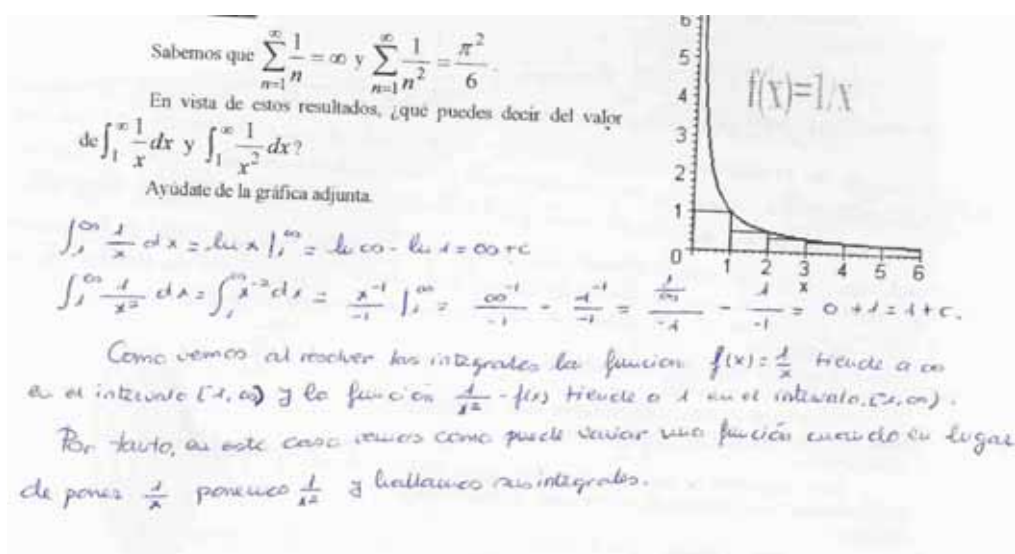 Sabemos que ∑_{n=1}^{∞} 1/n = ∞ y ∑_{n=1}^{∞} 1/n² = π²/6.
En vista de estos resultados, ¿qué puedes decir del valor
de ∫₁^∞ 1/x dx y ∫₁^∞ 1/x² dx?
Ayúdate de la gráfica adjunta.
6
5
4
3
2
1
0
1 2 3 4 5 6
x
f(x)=1/x
∫₁^∞ 1/x dx = ln x |₁^∞ = ln ∞ - ln 1 = ∞ + c
∫₁^∞ 1/x² dx = ∫₁^∞ x⁻² dx = x⁻¹/-1 |₁^∞ = ∞⁻¹/-1 - 1⁻¹/-1 = (1/∞)/-1 - 1/-1 = 0 + 1 = 1 + c.
Como vemos al resolver las integrales la funcion f(x) = 1/x tiende a ∞
en el intervalo [1, ∞) y la función 1/x² - f(x) tiende a 1 en el intervalo [1, ∞).
Por tanto, en este caso vemos como puede variar una función cuando en lugar
de poner 1/x ponemos 1/x² y hallamos sus integrales.